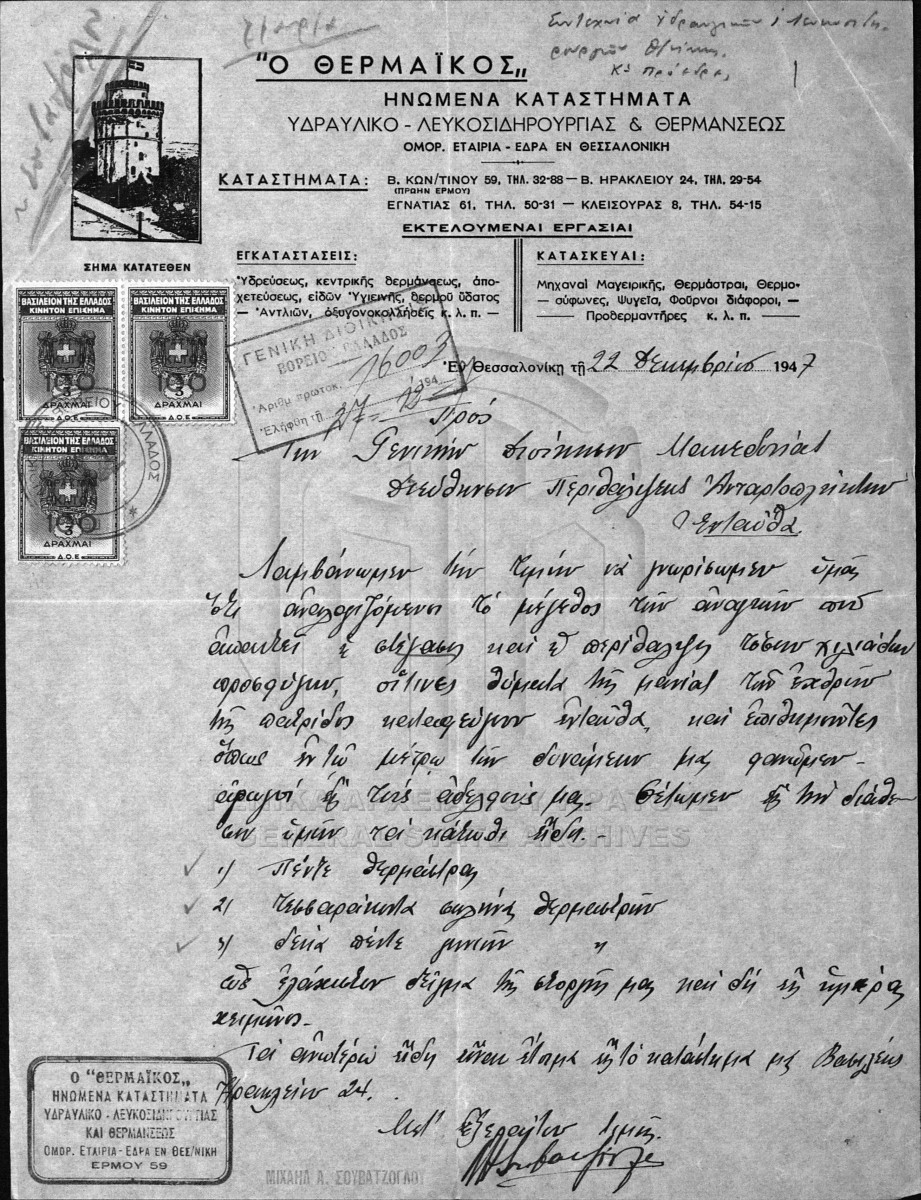 Συντεχνία Ὑδραυλικῶν & Λευκοσιδη-
ρουργῶν Θ/νίκης
Κον Πρόεδρον
"Ο ΘΕΡΜΑΪΚΟΣ„
ΗΝΩΜΕΝΑ ΚΑΤΑΣΤΗΜΑΤΑ
ΥΔΡΑΥΛΙΚΟ - ΛΕΥΚΟΣΙΔΗΡΟΥΡΓΙΑΣ & ΘΕΡΜΑΝΣΕΩΣ
ΟΜΟΡ. ΕΤΑΙΡΙΑ - ΕΔΡΑ ΕΝ ΘΕΣΣΑΛΟΝΙΚΗ
ΚΑΤΑΣΤΗΜΑΤΑ: Β. ΚΩΝ/ΤΙΝΟΥ 59, ΤΗΛ. 32-88 — Β. ΗΡΑΚΛΕΙΟΥ 24, ΤΗΛ. 29-54
(ΠΡΩΗΝ ΕΡΜΟΥ)
ΕΓΝΑΤΙΑΣ 61, ΤΗΛ. 50-31 — ΚΛΕΙΣΟΥΡΑΣ 8, ΤΗΛ. 54-15
ΕΚΤΕΛΟΥΜΕΝΑΙ ΕΡΓΑΣΙΑΙ
ΣΗΜΑ ΚΑΤΑΤΕΘΕΝ
ΕΓΚΑΤΑΣΤΑΣΕΙΣ:
Ὑδρεύσεως, κεντρικῆς θερμάνσεως, ἀπο-
χετεύσεως, εἰδῶν Ὑγιεινῆς, θερμοῦ ὕδατος
— Ἀντλιῶν, ὀξυγονοκολλήσεις κ.λ.π. —
ΚΑΤΑΣΚΕΥΑΙ:
Μηχαναὶ Μαγειρικῆς, Θερμάστραι, Θερμο-
σύφωνες, Ψυγεῖα, Φοῦρνοι διάφοροι, —
— Προθερμαντῆρες κ.λ.π. —
ΒΑΣΙΛΕΙΟΝ ΤΗΣ ΕΛΛΑΔΟΣ
ΚΙΝΗΤΟΝ ΕΠΙΣΗΜΑ
100
3
ΔΡΑΧΜΑΙ
Δ.Ο.Ε
ΒΑΣΙΛΕΙΟΝ ΤΗΣ ΕΛΛΑΔΟΣ
ΚΙΝΗΤΟΝ ΕΠΙΣΗΜΑ
100
3
ΔΡΑΧΜΑΙ
Δ.Ο.Ε
ΒΑΣΙΛΕΙΟΝ ΤΗΣ ΕΛΛΑΔΟΣ
ΚΙΝΗΤΟΝ ΕΠΙΣΗΜΑ
100
3
ΔΡΑΧΜΑΙ
Δ.Ο.Ε
ΓΕΝΙΚΗ ΔΙΟΙΚΗΣΙΣ
ΒΟΡΕΙΟΥ ΕΛΛΑΔΟΣ
Ἀριθμ πρωτοκ. 16003
Ἐλήφθη τῇ 27-12-194
Ἐν Θεσσαλονίκῃ τῇ 22 Δεκεμβρίου 1947
Πρός
τὴν Γενικὴν Διοίκησιν Μακεδονίας
Διεύθησιν Περιθάλψεως Ἀνταρτοπλήκτων
Ἐνταῦθα.
Λαμβάνωμεν τὴν τιμὴν νὰ γνωρίσωμεν ὑμᾶς
ὅτι ἀναλογιζόμενοι τὸ μέγεθος τῶν ἀναγκῶν ποὺ
ἀπαιτεῖ ἡ στέγασις καὶ ἡ περίθαλψις τόσων χιλιάδων
προσφύγων, οἵτινες θύματα τῆς μανίας τῶν ἐχθρῶν
τῆς πατρίδος καταφεύγουν ἐνταῦθα, καὶ ἐπιθυμοῦντες
ὅπως ἐν τῷ μέτρῳ τῶν δυνάμεων μας φανῶμεν
ἀρωγοί εἰς τοὺς ἀδελφούς μας. Θέτωμεν εἰς τὴν διάθε-
σιν ὑμῶν τὰ κάτωθι εἴδη.-
1) Πέντε θερμάστρας
2) τεσσαράκοντα σωλήνας θερμαστρῶν
3) δέκα πέντε γωνιῶν "
ὡς ἐλάχιστον δεῖγμα τῆς στοργῆς μας καὶ δὴ εἰς ἡμέρας
χειμῶνος.-
Τὰ ἀνωτέρω εἴδη εἶναι ἕτοιμα εἰς τὸ κατάστημα μας Βασιλέως
Ἡρακλείου 24.
Μεθ' ἐξαιρέτου τιμῆς.
Ο "ΘΕΡΜΑΪΚΟΣ„
ΗΝΩΜΕΝΑ ΚΑΤΑΣΤΗΜΑΤΑ
ΥΔΡΑΥΛΙΚΟ - ΛΕΥΚΟΣΙΔΗΡΟΥΡΓΙΑΣ
ΚΑΙ ΘΕΡΜΑΝΣΕΩΣ
ΟΜΟΡ. ΕΤΑΙΡΙΑ - ΕΔΡΑ ΕΝ ΘΕΣ/ΝΙΚΗ
ΕΡΜΟΥ 59
ΜΙΧΑΗΛ Α. ΣΟΥΒΑΤΖΟΓΛΟΥ
GENERAL STATE ARCHIVES